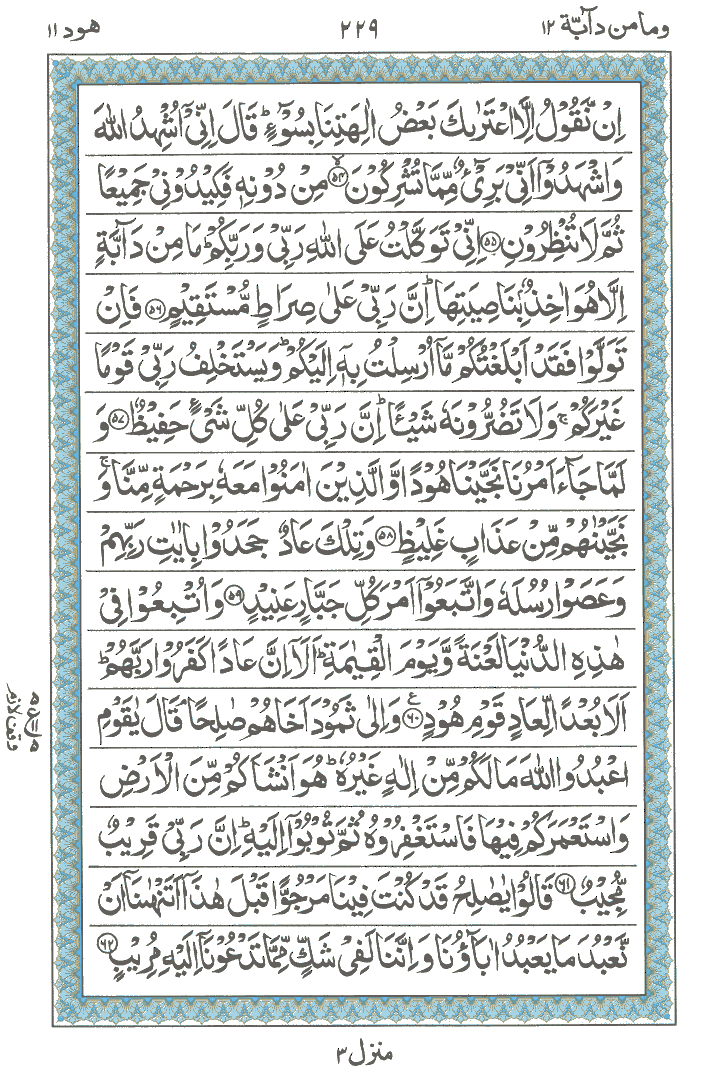 وما من دآبة ١٢ ٢٢٩ هود ١١
اِنْ نَّقُوْلُ اِلَّا اعْتَرٰىكَ بَعْضُ اٰلِهَتِنَا بِسُوْٓءٍ ؕ قَالَ اِنِّیْۤ اُشْهِدُ اللّٰهَ
وَاشْهَدُوْۤا اَنِّیْ بَرِیْٓءٌ مِّمَّا تُشْرِكُوْنَ ۙ﴿۵۴﴾ مِنْ دُوْنِهٖ فَكِیْدُوْنِیْ جَمِیْعًا
ثُمَّ لَا تُنْظِرُوْنِ ﴿۵۵﴾ اِنِّیْ تَوَكَّلْتُ عَلَی اللّٰهِ رَبِّیْ وَرَبِّكُمْ ؕ مَا مِنْ دَآبَّةٍ
اِلَّا هُوَ اٰخِذٌۢ بِنَاصِیَتِهَا ؕ اِنَّ رَبِّیْ عَلٰی صِرَاطٍ مُّسْتَقِیْمٍ ﴿۵۶﴾ فَاِنْ
تَوَلَّوْا فَقَدْ اَبْلَغْتُكُمْ مَّاۤ اُرْسِلْتُ بِهٖۤ اِلَیْكُمْ ؕ وَیَسْتَخْلِفُ رَبِّیْ قَوْمًا
غَیْرَكُمْ ۚ وَلَا تَضُرُّوْنَهٗ شَیْـًٔا ؕ اِنَّ رَبِّیْ عَلٰی كُلِّ شَیْءٍ حَفِیْظٌ ﴿۵۷﴾ وَ
لَمَّا جَآءَ اَمْرُنَا نَجَّیْنَا هُوْدًا وَّالَّذِیْنَ اٰمَنُوْا مَعَهٗ بِرَحْمَةٍ مِّنَّا ۚ وَ
نَجَّیْنٰهُمْ مِّنْ عَذَابٍ غَلِیْظٍ ﴿۵۸﴾ وَتِلْكَ عَادٌ جَحَدُوْا بِاٰیٰتِ رَبِّهِمْ
وَعَصَوْا رُسُلَهٗ وَاتَّبَعُوْۤا اَمْرَ كُلِّ جَبَّارٍ عَنِیْدٍ ﴿۵۹﴾ وَاُتْبِعُوْا فِیْ
هٰذِهِ الدُّنْیَا لَعْنَةً وَّیَوْمَ الْقِیٰمَةِ ؕ اَلَاۤ اِنَّ عَادًا كَفَرُوْا رَبَّهُمْ ؕ
اَلَا بُعْدًا لِّعَادٍ قَوْمِ هُوْدٍ ﴿۶۰﴾ ع وَاِلٰی ثَمُوْدَ اَخَاهُمْ صٰلِحًا ۘ قَالَ یٰقَوْمِ
اعْبُدُوا اللّٰهَ مَا لَكُمْ مِّنْ اِلٰهٍ غَیْرُهٗ ؕ هُوَ اَنْشَاَكُمْ مِّنَ الْاَرْضِ
وَاسْتَعْمَرَكُمْ فِیْهَا فَاسْتَغْفِرُوْهُ ثُمَّ تُوْبُوْۤا اِلَیْهِ ؕ اِنَّ رَبِّیْ قَرِیْبٌ
مُّجِیْبٌ ﴿۶۱﴾ قَالُوْا یٰصٰلِحُ قَدْ كُنْتَ فِیْنَا مَرْجُوًّا قَبْلَ هٰذَاۤ اَتَنْهٰىنَاۤ اَنْ
نَّعْبُدَ مَا یَعْبُدُ اٰبَآؤُنَا وَاِنَّنَا لَفِیْ شَكٍّ مِّمَّا تَدْعُوْنَاۤ اِلَیْهِ مُرِیْبٍ ﴿۶۲﴾
وقف لازم
منزل ٣